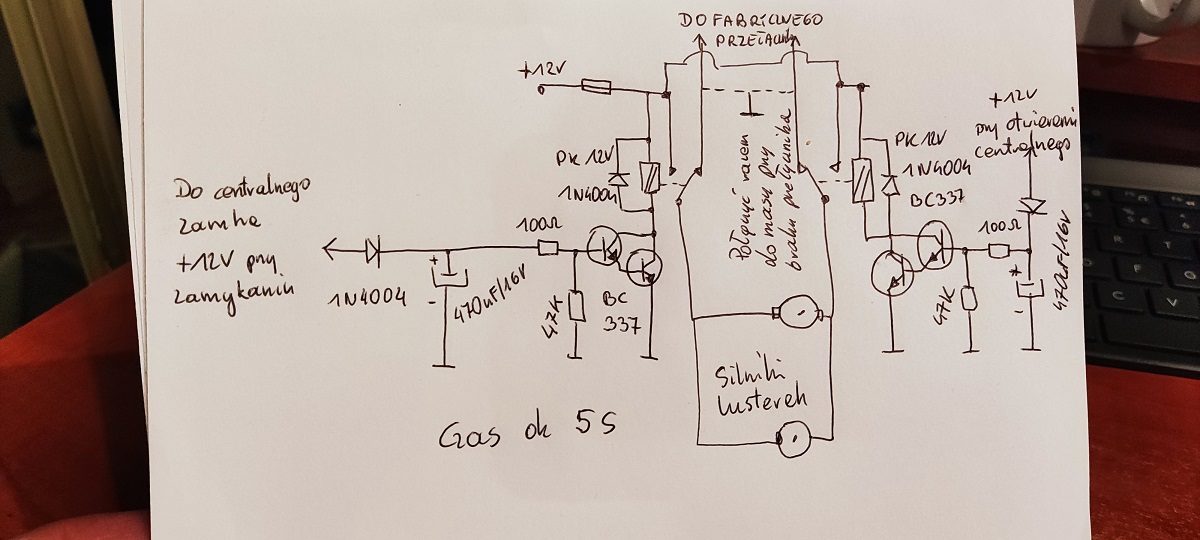 DO FABRYCZNEGO
PRZEŁĄCZNIKA
+12V
+12V
przy otwieraniu
centralnego
PK 12V
1N4004
Połączyć razem
do masy przy
braku przełącznika
PK 12V
1N4004
BC337
Do centralnego
zamka
+12V przy
zamykaniu
100Ω
100Ω
1N4004
+
-
470uF/16V
47K
BC
337
47K
+
-
470uF/16V
Silniki
lusterek
Czas ok 5S